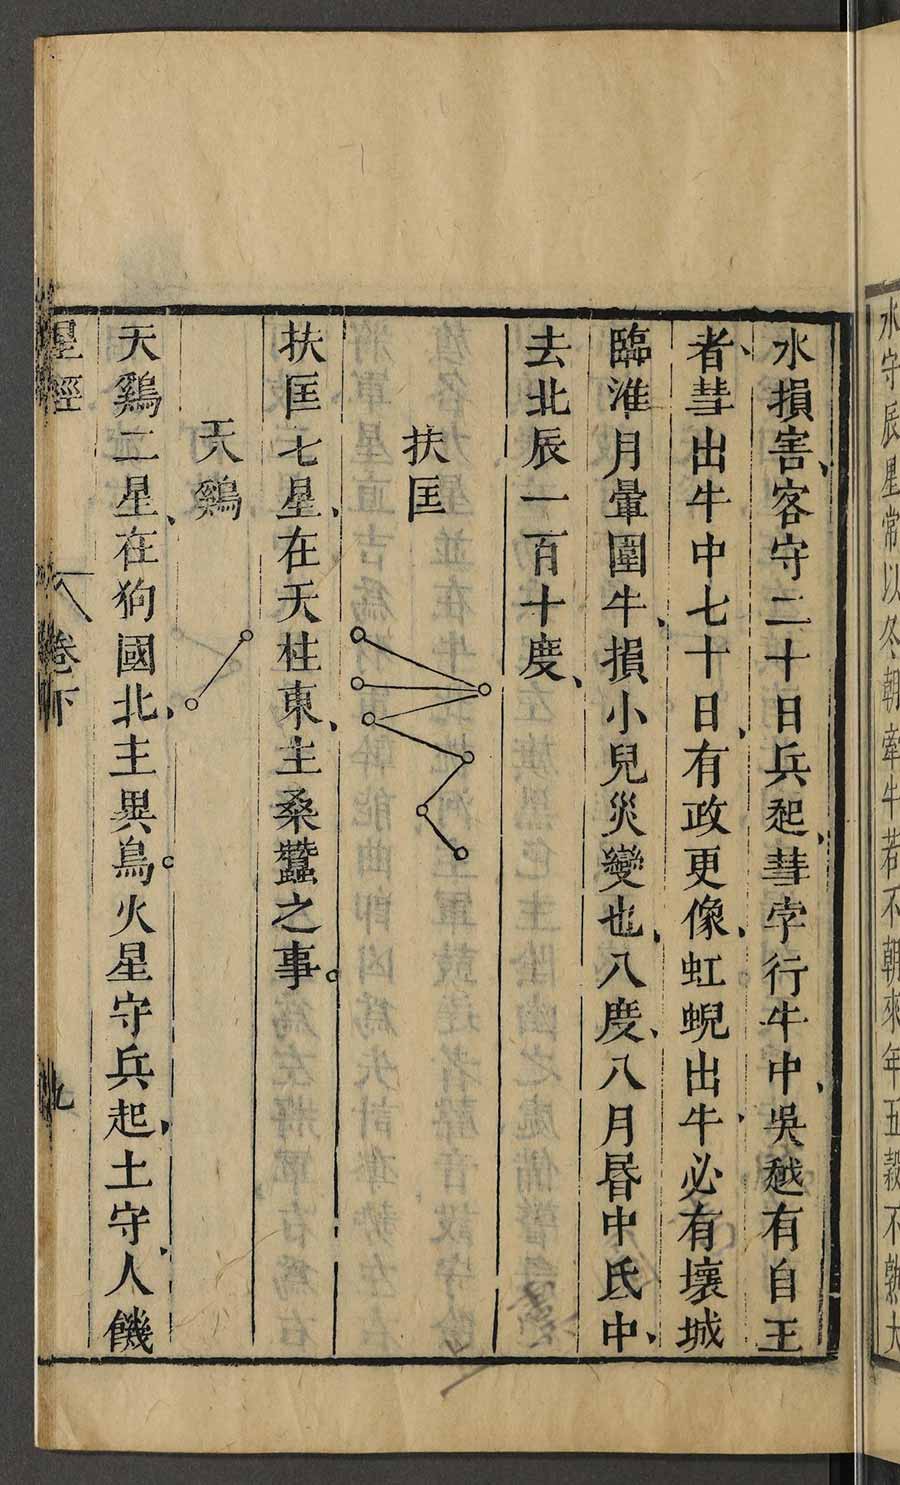 永守辰星常以冬朝牽牛若不朝來年五穀不熟大
水損害客守二十日兵起彗孛行牛中吳越有自王
者彗出牛中七十日有政更像虹蜺出牛必有壞城
臨淮月暈圍牛損小兒災變也八度八月昏中氐中
去北辰一百十度
扶匡
扶匡七星在天柱東主桑蠶之事
天鷄
天鷄二星在狗國北主異鳥火星守兵起土守人饑
星經 卷下 九